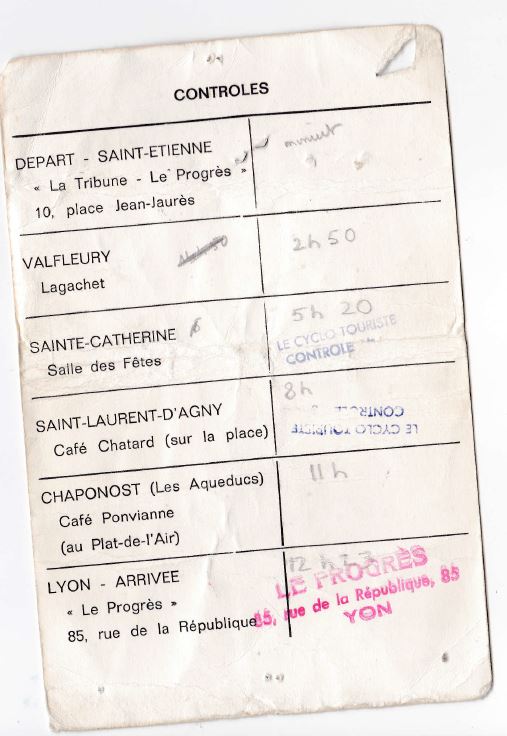 CONTROLES
DEPART - SAINT-ETIENNE
« La Tribune - Le Progrès »
10, place Jean-Jaurès
minuit
VALFLEURY
Lagachet
2h 50
SAINTE-CATHERINE
Salle des Fêtes
5h 20
LE CYCLO TOURISTE
CONTROLE
SAINT-LAURENT-D'AGNY
Café Chatard (sur la place)
8h
LE CYCLO TOURISTE
CONTROLE
CHAPONOST (Les Aqueducs)
Café Ponvianne
(au Plat-de-l'Air)
11h
LYON - ARRIVEE
« Le Progrès »
85, rue de la République
12 h
LE PROGRÈS
85, rue de la République, 85
YON